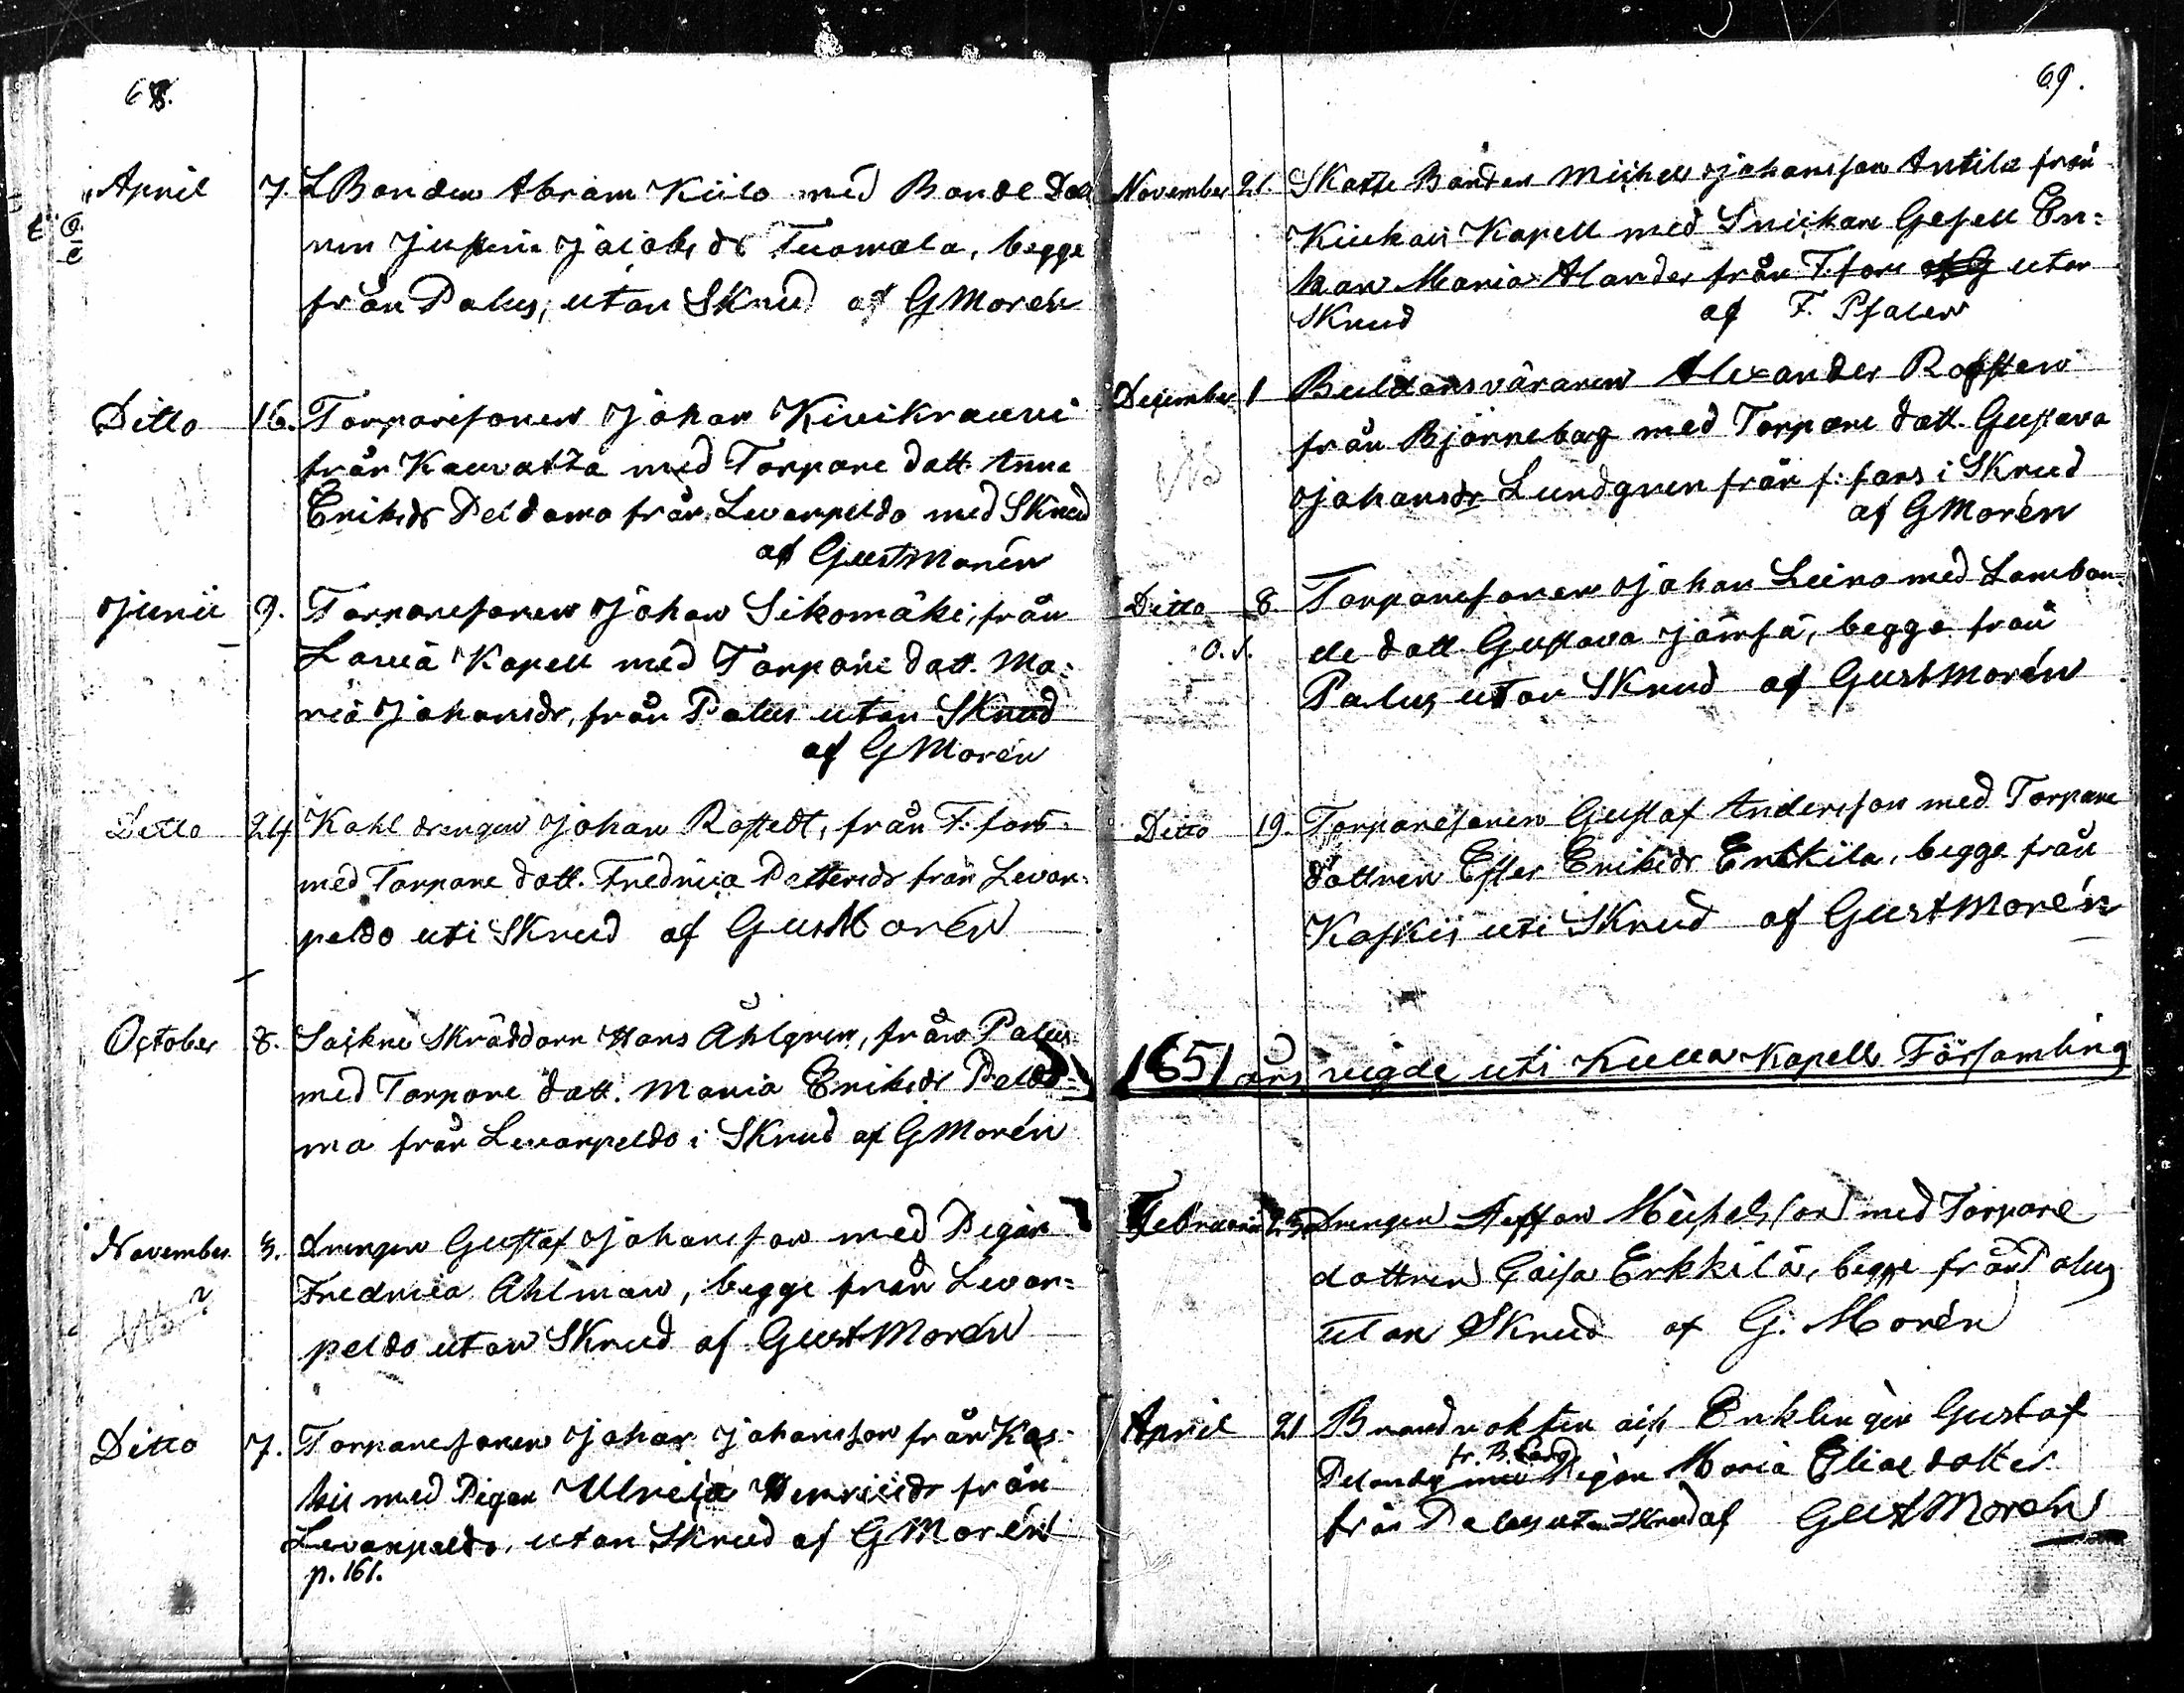 68.
April 7. LBonden Abram Kiilo med Bonde Dott
ren Justina Jacobsdr Tuomola, begge
från Palus, utan Skrud af GMorén
Ditto 16. Torparesonen Johan Kivikrauni
från Kauvatza med Torpare dott. Anna
Eriksdr Peldoma från Levanpeldo med Skrud
af GustMorén
Junii 9. Torparesonen Johan Sikomäki, från
Lavia Kapell med Torpare dott. Ma-
ria Johansdr, från Palus utan Skrud
af GMorén
Ditto 24 Kohl drengen Johan Rostedt, från F:fors
med Torpare dott. Fredrica Pettersdr från Levan-
peldo uti Skrud af GustMorén
October 8. Sockne Skräddarn Hans Åhlgren, från Palus
med Torpare dott. Maria Eriksdr Peldo-
ma från Levanpeldo i Skrud af GMorén
November 3. Drengen Gustaf Johansson med Pigan
Fredrica Ahlman, begge från Levan-
peldo utan Skrud af GustMorén
Ditto 7. Torparesonen Johan Johansson från Kas-
kis med Pigan Ulrica Henricsdr från
Levanpeldo, utan Skrud af GMorén
p. 161.
69.
November 21. Skatte Bonden Michel Johansson Antila från
Kiukais Kapell med Snickare Gesell En-
kan Maria Alander från F.fors utan
Skrud af F. Pfaler
December 1 Buldansvävaren Alexander Roffsten
från Björneborg med Torpare dott. Gustava
Johansdr Lundgren från f:fors i Skrud
af GMorén
Ditto 8. Torparesonen Johan Leino med Lambon-
de dott. Gustava Jämsä, begge från
o.s.
Palus utan Skrud af GustMorén
Ditto 19. Torparesonen Gustaf Andersson med Torpare
dottren Ester Eriksdr Erkkila, begge från
Kaskis uti Skrud af GustMorén
1851 års vigde uti Kulla Kapells Församling
Februari 23 Drengen Steffan Michelsson med Torpare
dottren Caisa Erkkilä, begge från Palus
utan Skrud af G. Morén
April 21 Brandvakten och Enklingen Gustaf
fr. B.borg
Pelander med Pigan Maria Eliaedotter
från Palus utan Skrud af GustMorén